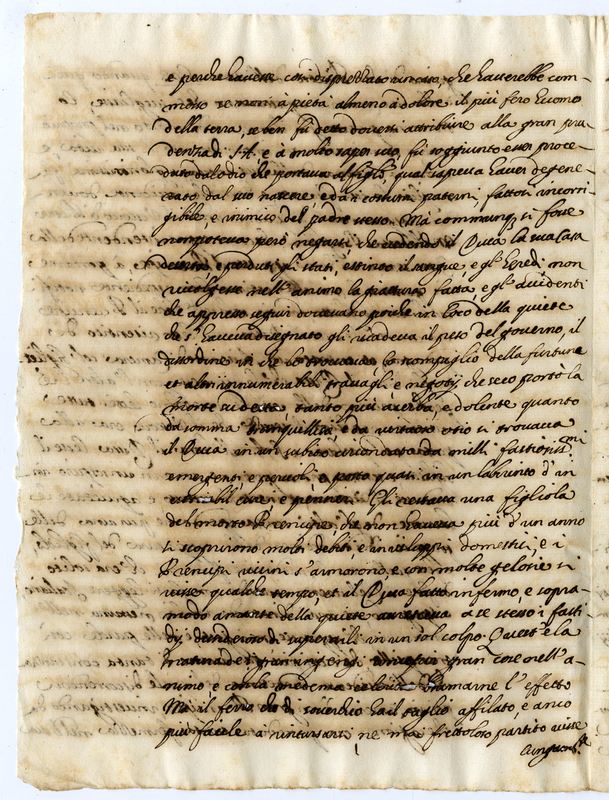 e perche havesse così disprezzato un caso, che haverebbe com-
mosso se non à pietà almeno à dolore il più fero huomo
della terra, se ben fù detto doversi attribuire alla gran pru
denza di S.A. e à molto saper suo, fù soggiunto esser proce
duto dal odio che portava al figlio, qual sapeva haver degene
rato dal suo nascere, e da i costumi paterni, fattosi incorri-
gibile, e inimico del padre stesso. Ma communq3 si fosse
non poteva però negarsi che vedendo il Duca la sua Casa
deserta, e perduti gli stati, estinto il sangue, e gl' heredi non
rivolgesse nell' animo la giattura fatta, e gl' accidenti
che appresso seguir dovevano poiche in loco della quiete
che s' haveva disegnato gli ricadeva il peso del governo, il
disordine in che lo trovava, lo scompiglio della fortuna
et altri innumerabili travagli, e negotij, che seco portò la
morte sudetta, tanto più acerba, e dolente quanto
da somma tranquillità, e da virtuoso otio si trovava
il Duca in un subito circondato da mille
emergenti e pericoli, e posto quasi in un laberinto d' in
estricabil cure, e pensieri. Gli restava una figliola
del morto Prencipe, che non haveva più d' un anno
si scoprirono molti debiti, e inviluppi domestici, e i
Prencipi vicini s' armorono, e con molte gelosie si
visse qualche tempo, et il Duca fatto infermo, e sopra-
modo amante della quiete accresceva a se stesso i fasti
dij desideroso di superarli in un sol colpo. Quest' è la
natura de i gran ingegni gran cose nell' a-
nimo e con la medema bramarne l' effetto
Ma il ferro ch' di soverchio ha il taglio affilato, è anco
più facile a rintuzzarsi, ne mai frettoloso partito visse